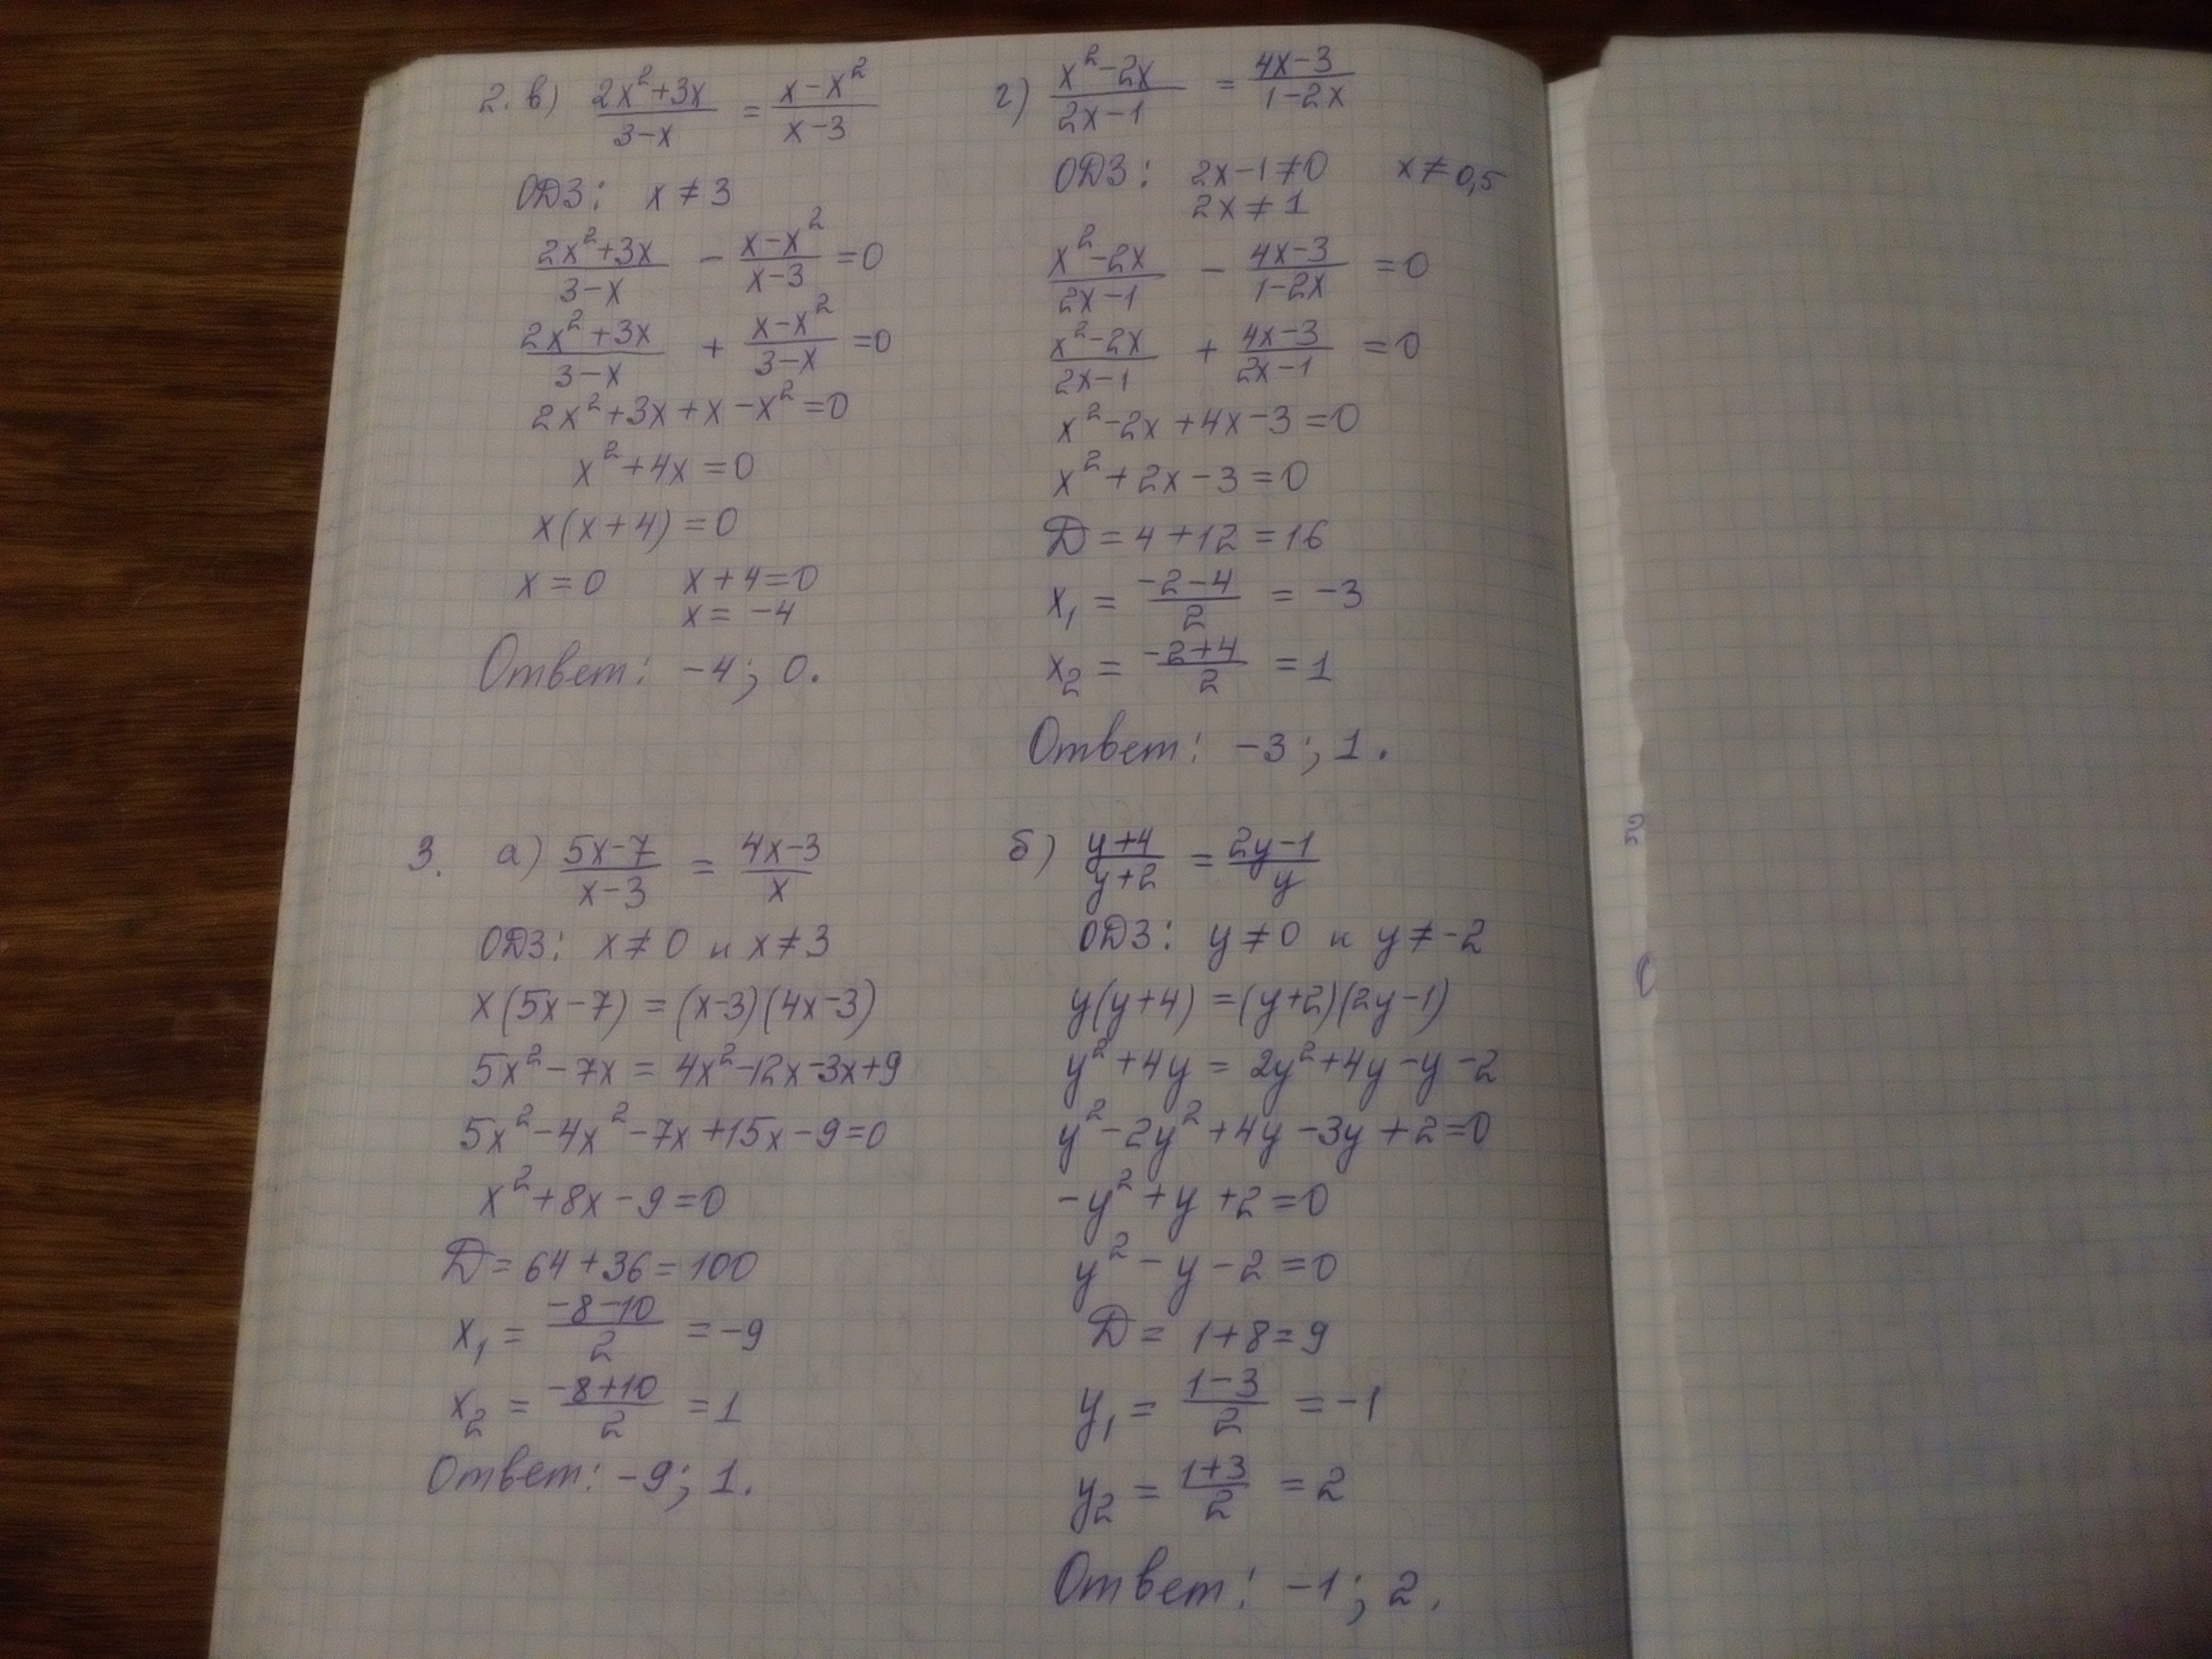 2. в) (2x²+3x)/(3-x) = (x-x²)/(x-3)
ОДЗ: x ≠ 3
(2x²+3x)/(3-x) - (x-x²)/(x-3) = 0
(2x²+3x)/(3-x) + (x-x²)/(3-x) = 0
2x²+3x+x-x²=0
x²+4x=0
x(x+4)=0
x=0 x+4=0
x=-4
Ответ: -4; 0.
г) (x²-2x)/(2x-1) = (4x-3)/(1-2x)
ОДЗ: 2x-1≠0 x≠0,5
2x≠1
(x²-2x)/(2x-1) - (4x-3)/(1-2x) = 0
(x²-2x)/(2x-1) + (4x-3)/(2x-1) = 0
x²-2x+4x-3=0
x²+2x-3=0
Д=4+12=16
x₁ = (-2-4)/2 = -3
x₂ = (-2+4)/2 = 1
Ответ: -3; 1.
3. а) (5x-7)/(x-3) = (4x-3)/x
ОДЗ: x≠0 и x≠3
x(5x-7)=(x-3)(4x-3)
5x²-7x=4x²-12x-3x+9
5x²-4x²-7x+15x-9=0
x²+8x-9=0
Д=64+36=100
x₁ = (-8-10)/2 = -9
x₂ = (-8+10)/2 = 1
Ответ: -9; 1.
б) (y+4)/(y+2) = (2y-1)/y
ОДЗ: y≠0 и y≠-2
y(y+4)=(y+2)(2y-1)
y²+4y=2y²+4y-y-2
y²-2y²+4y-3y+2=0
-y²+y+2=0
y²-y-2=0
Д=1+8=9
y₁ = (1-3)/2 = -1
y₂ = (1+3)/2 = 2
Ответ: -1; 2.